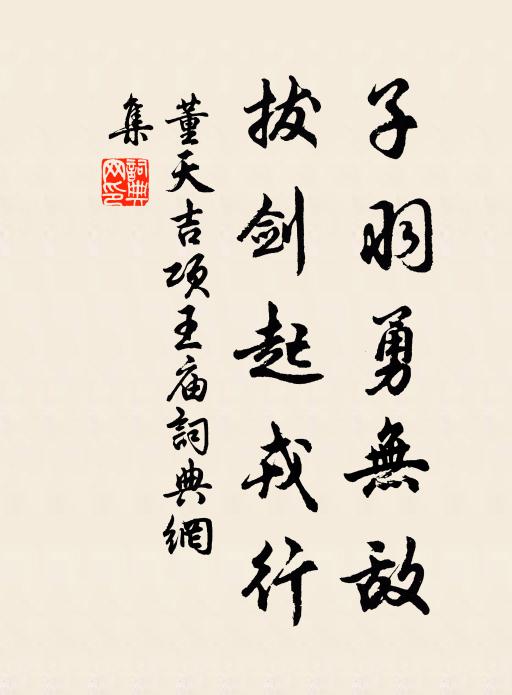 子羽勇無敌
拔剑起戎行
董天吉项王庙詞典網
集
詞典
網印